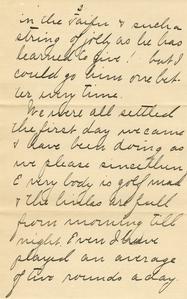 2
in the Parlor & such a
string of jolly as he has
learned to give! but I
could go him one bet-
ter every time.
We were all settled
the first day we came
& have been doing as
we please since then
Every body is golf mad
& the links are full
from morning till
night Even I have
played an average
of two rounds a day.